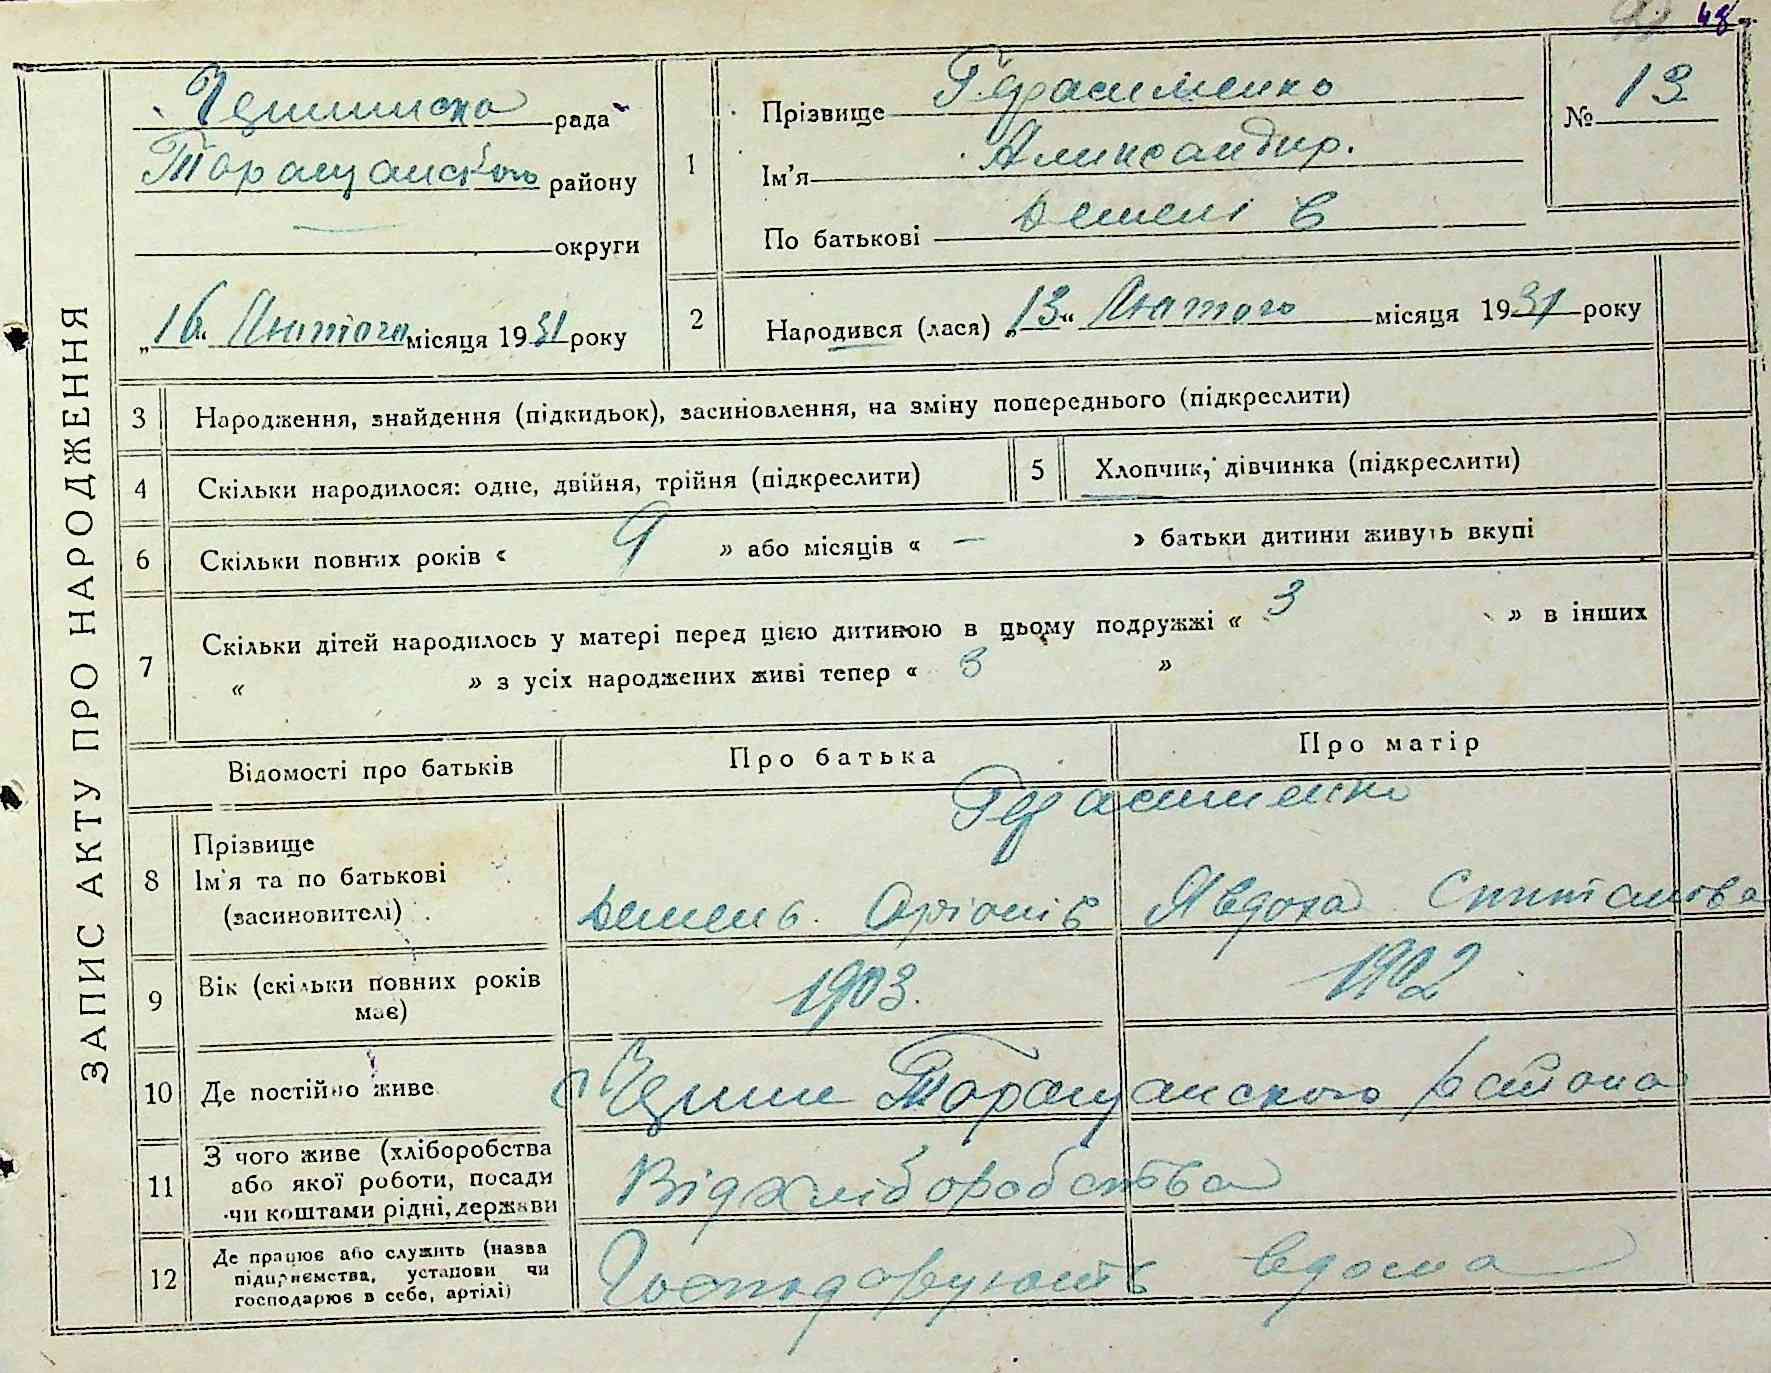 48
ЗАПИС АКТУ ПРО НАРОДЖЕННЯ
рада
Таращанського району
округи
„16“ Лютого місяця 1931 року
1
Прізвище Герасименко
Ім'я Александр.
По батькові Демені в
№ 13
2
Народився (лася) „13“ Лютого місяця 1931 року
3 Народження, знайдення (підкидьок), засиновлення, на зміну попереднього (підкреслити)
4 Скільки народилося: одне, двійня, трійня (підкреслити)
5 Хлопчик, дівчинка (підкреслити)
6 Скільки повних років « 9 » або місяців « — » батьки дитини живуть вкупі
7 Скільки дітей народилось у матері перед цією дитиною в цьому подружжі « 3 » в інших
« » з усіх народжених живі тепер « 3 »
Відомості про батьків
Про батька
Про матір
8 Прізвище
Ім'я та по батькові
(засиновителі)
Герасименко
Явдоха
9 Вік (скільки повних років
має)
1903.
1902
10 Де постійно живе
Таращанского района
11 З чого живе (хліборобства
або якої роботи, посади
чи коштами рідні, держави
Від хліборобства
12 Де працює або служить (назва
підприємства, установи чи
господарює в себе, артілі)
Господарують вдома